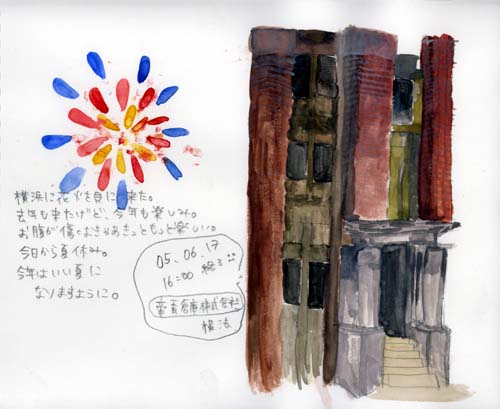 横浜に花火を見に来た。
去年も来たけど、今年も楽しみ。
お腹が
今日から夏休み。
今年はいい夏に
なりますように。
05.06.17
16:00 終了
帝蚕倉庫株式会社
横浜